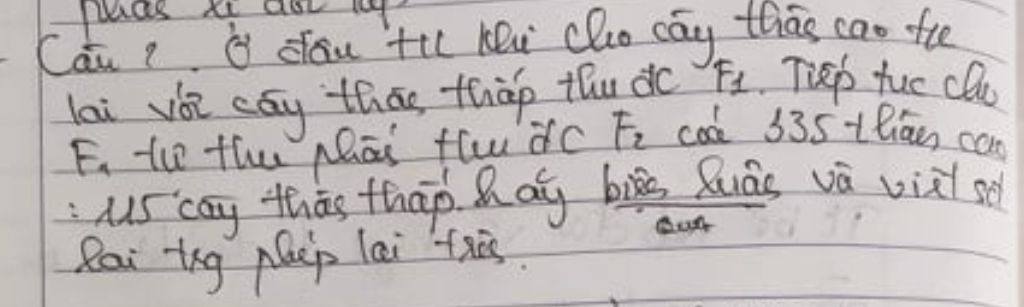 Câu 2. Ở đậu tt khi cho cây thân cao tt
lai với cây thân thấp thu đc F1. Tiếp tục cho
F1 tự thụ phấn thu đc F2 có 335 thân cao
: 115 cây thân thấp. hãy biện luận và viết sơ
lai trg phép lai trên.